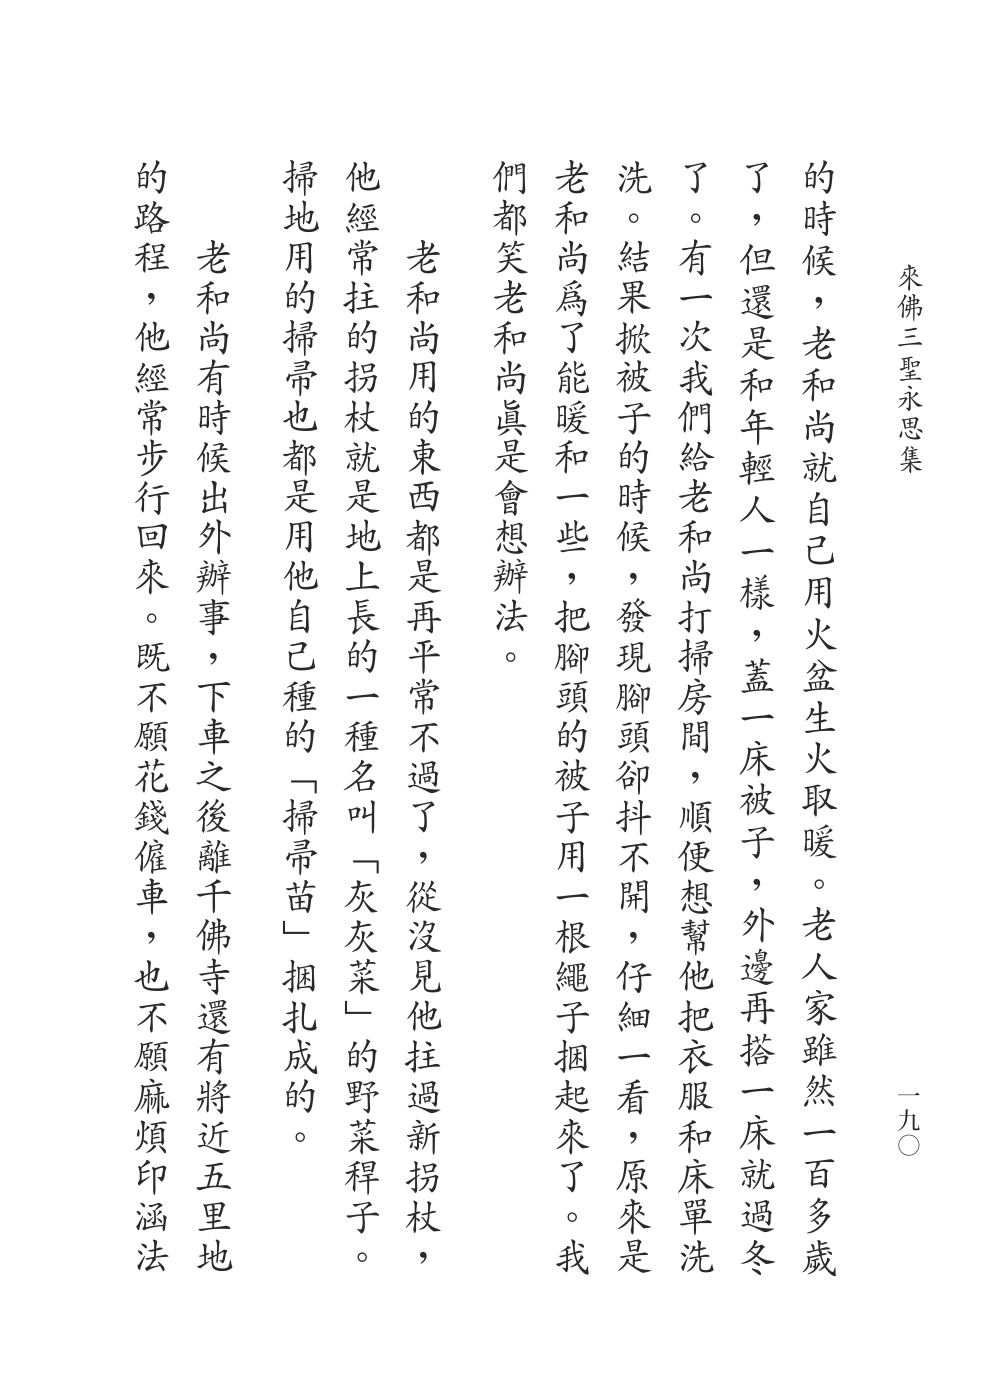 來佛三聖永思集
一九〇
的時候，老和尚就自己用火盆生火取暖。老人家雖然一百多歲
了，但還是和年輕人一樣，蓋一床被子，外邊再搭一床就過冬
了。有一次我們給老和尚打掃房間，順便想幫他把衣服和床單洗
洗。結果掀被子的時候，發現腳頭卻抖不開，仔細一看，原來是
老和尚爲了能暖和一些，把腳頭的被子用一根繩子捆起來了。我
們都笑老和尚眞是會想辦法。
老和尚用的東西都是再平常不過了，從沒見他拄過新拐杖，
他經常拄的拐杖就是地上長的一種名叫「灰灰菜」的野菜稈子。
掃地用的掃帚也都是用他自己種的「掃帚苗」捆扎成的。
老和尚有時候出外辦事，下車之後離千佛寺還有將近五里地
的路程，他經常步行回來。既不願花錢僱車，也不願麻煩印涵法